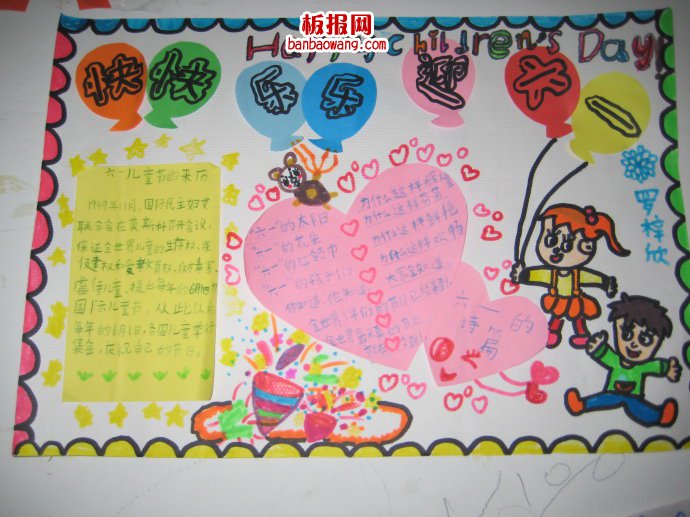 板报网
banbaowang.com
Happy Children's Day
快快乐乐迎六一
六一儿童节的来历
1949年11月,国际民主妇女
联合会在莫斯科召开会议,
保证全世界儿童的生存权、保
健权和受教育权,反对毒害、
虐待儿童,提出每年的6月1日为
国际儿童节。从此以后
每年的6月1日,各国儿童举行
集会,庆祝自己的节日。
"六一"的太阳
为什么这样辉煌
"六一"的花朵
为什么这样芬芳
"六一"的红领巾
为什么这样鲜艳
"六一"的孩子们
为什么这样欢畅
你知道,他知道
大家全知道
全世界儿童们的节日已经来到
六一的
诗篇
罗梓欣